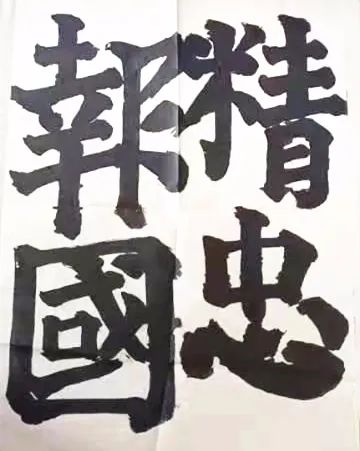 精忠
報國